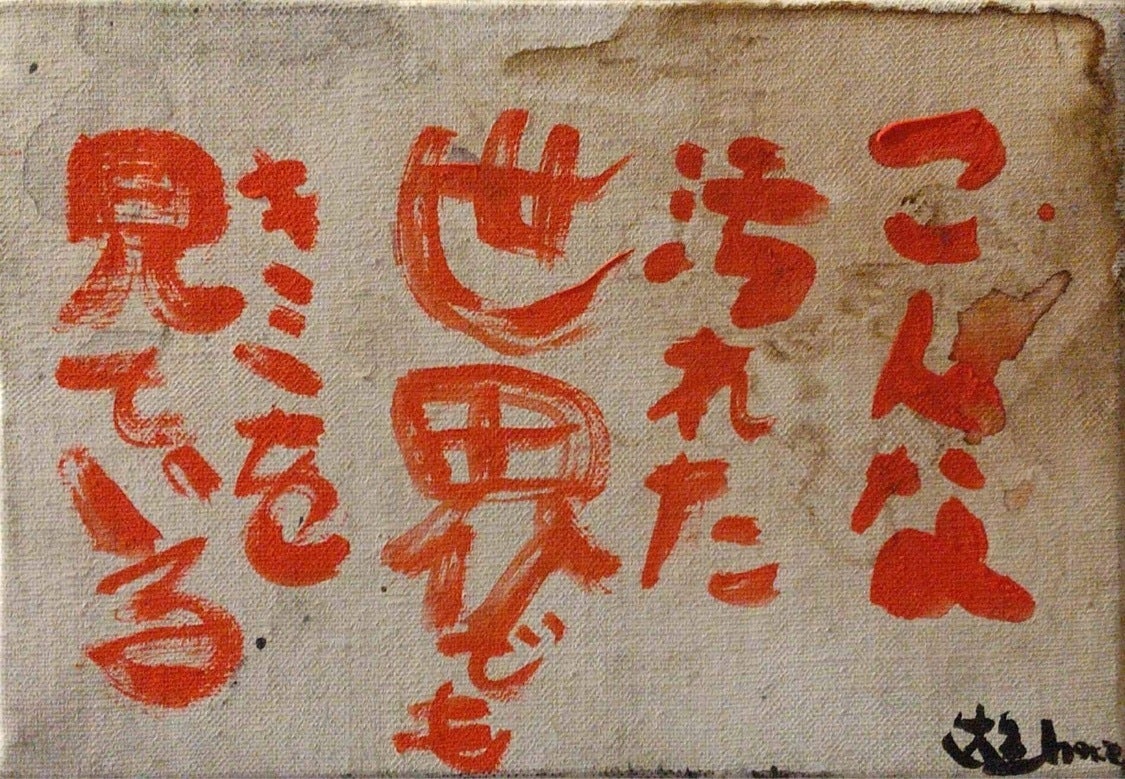 こんな
汚れた
世界でも
きミを
見ている